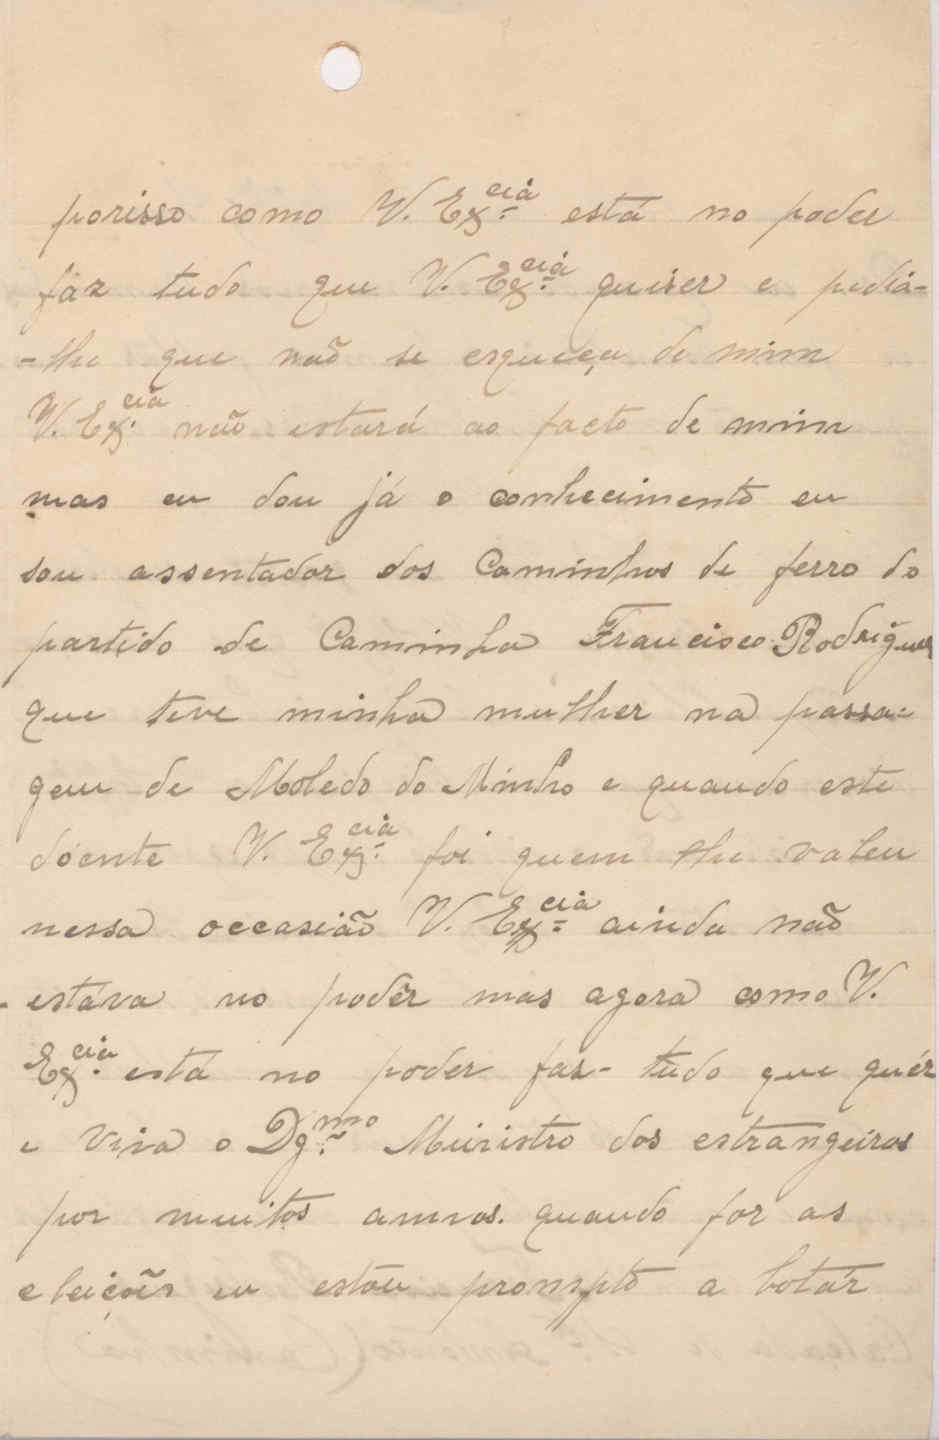 porisso como V. Ex.cia está no poder
fáz tudo que V. Ex.cia quiser e pedia-
-lhe que não se esqueça de mim
V. Ex.cia não estará ao facto de mim
mas eu dou já o conhecimento eu
sou assentador dos Caminhos de ferro do
partido de Caminha Francisco Rodrigues
que teve minha mulher na passa-
gem de Moledo do Minho e quando este
dóente V. Ex.cia foi quem lhe valeu
nessa occasião V. Ex.cia ainda não
estáva no podêr mas agora como V.
Ex.cia está no poder faz- tudo que quér
e viva o Dg.mo Ministro dos estrangeiros
por muitos annos. quando for as
eleições eu estou prompto a botár